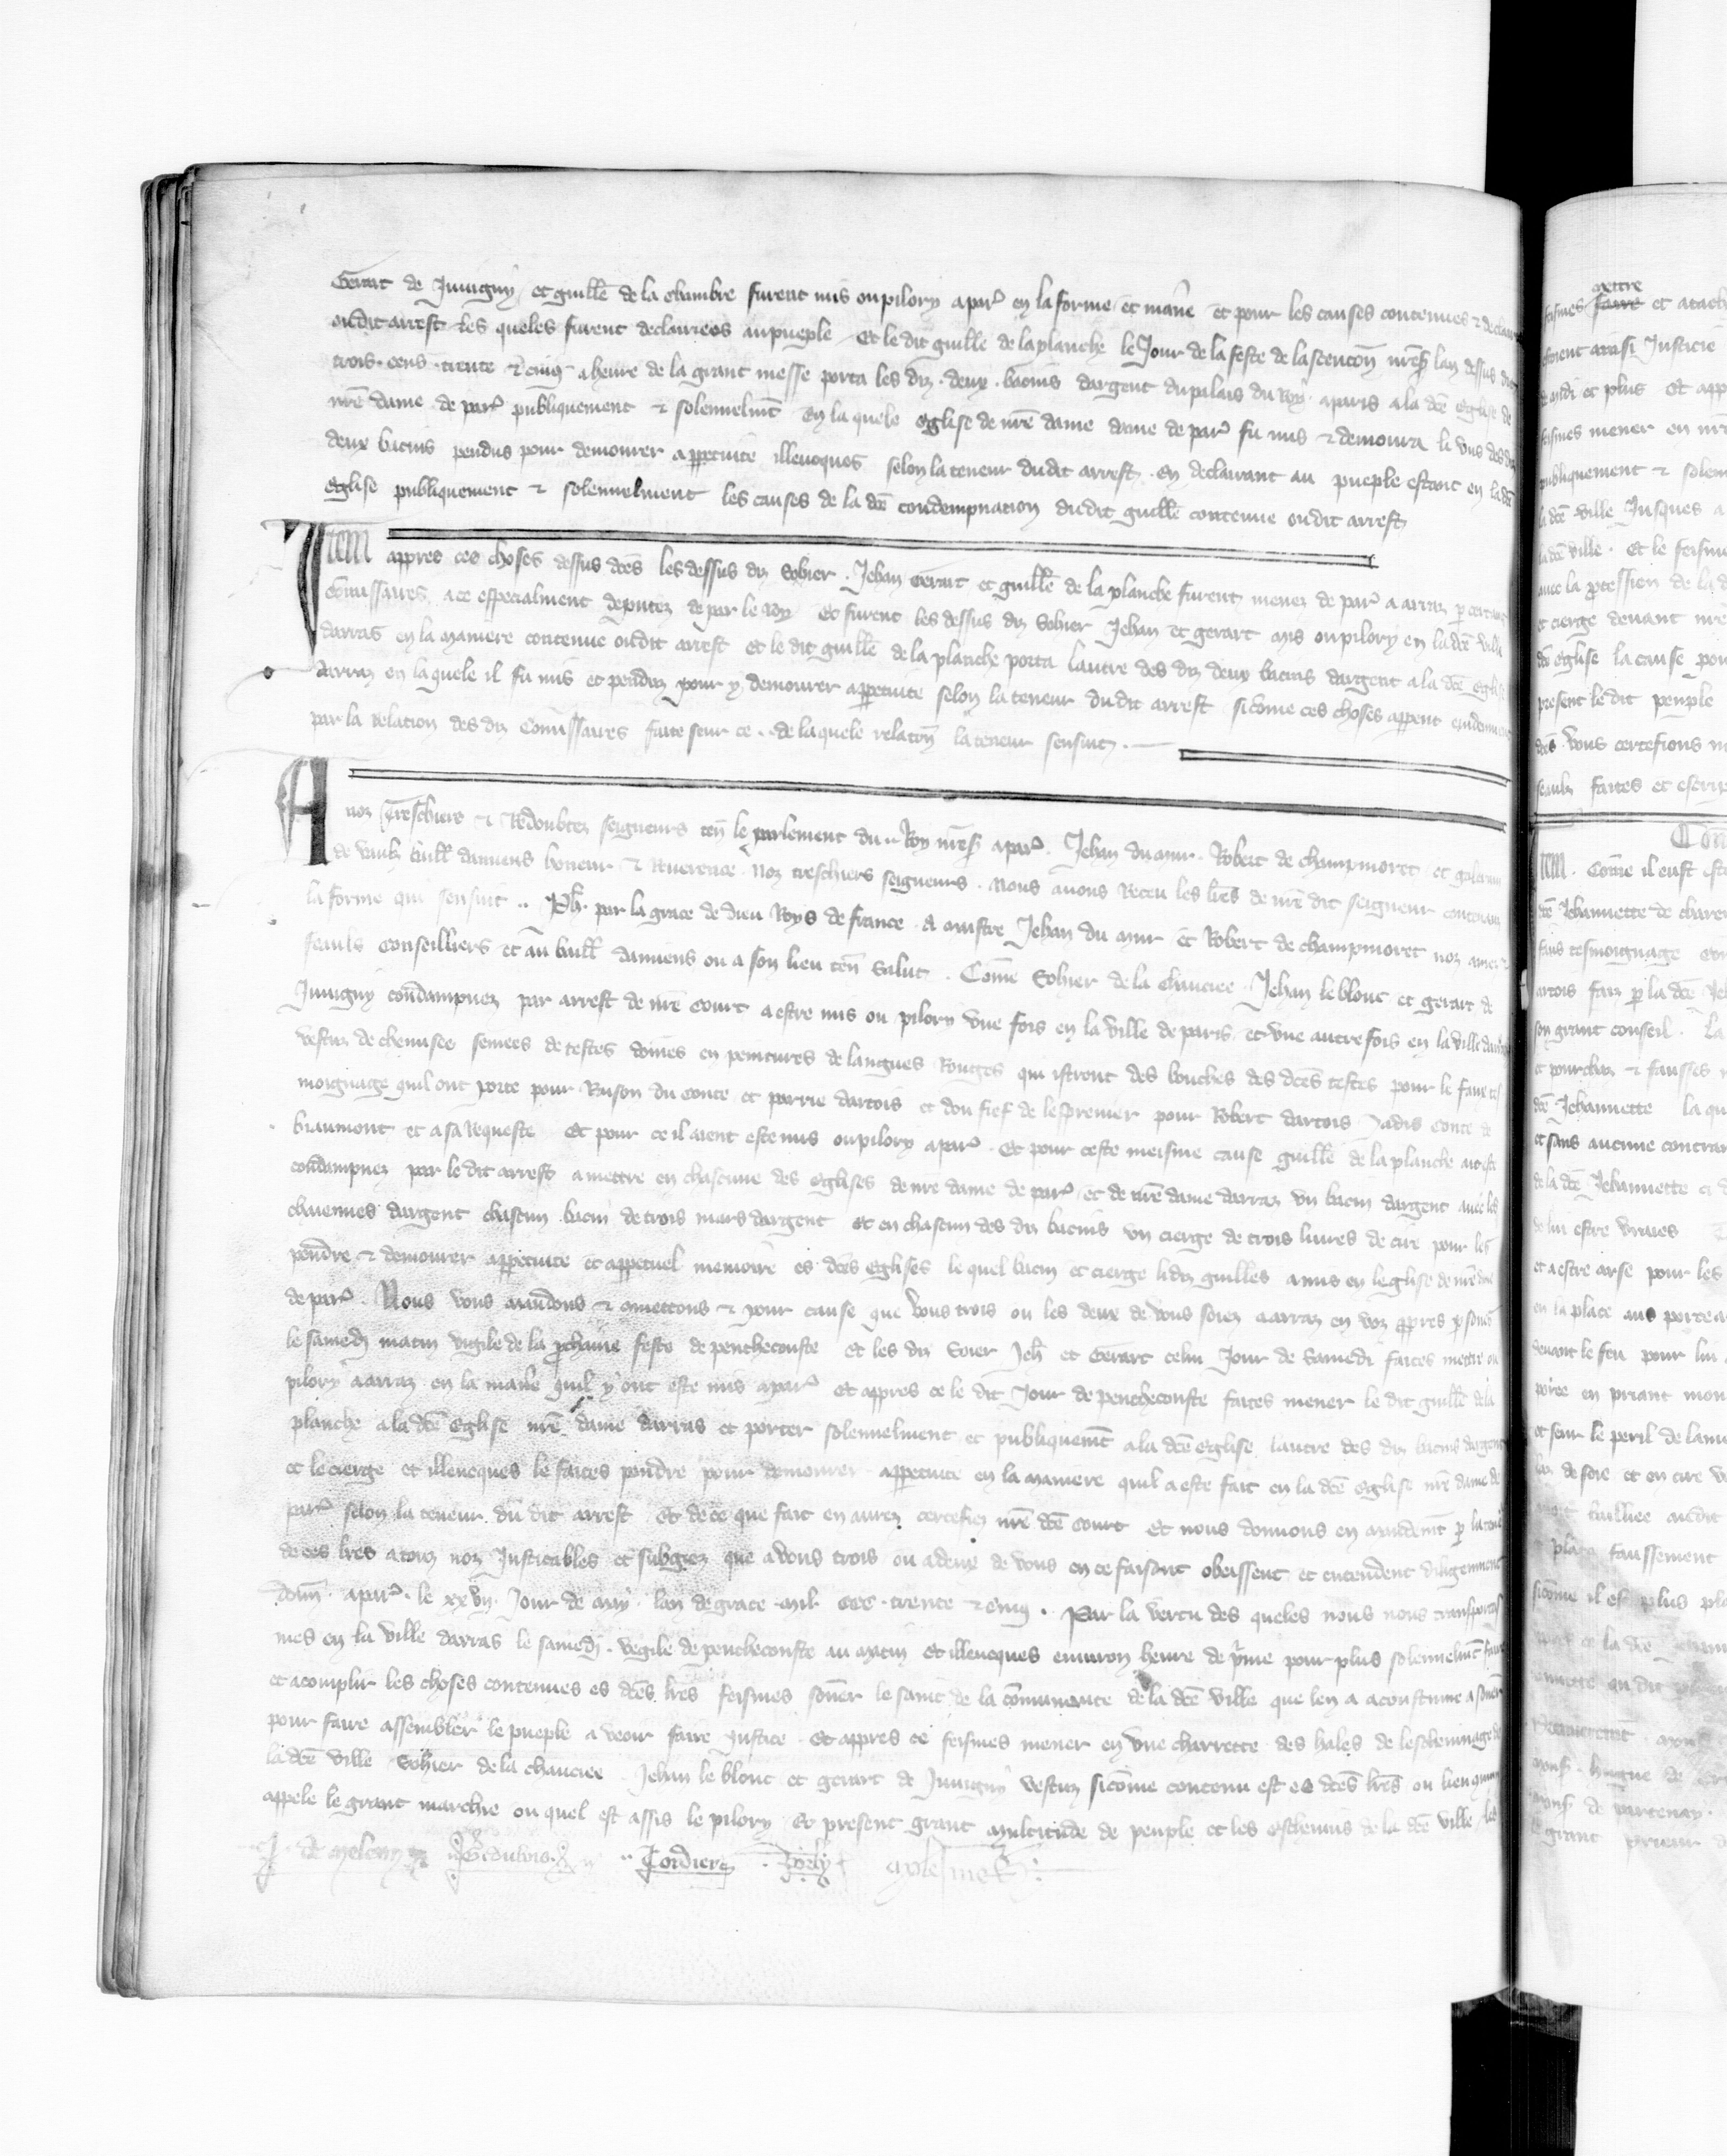 Gerart de Juvigny et guille de la chambre furent mis ou pilory a par en la forme et maniere et pour les causes contenues & declair
oudit arrest les queles furent declairees au pueple Et le dit guille de la planche le Jour de la feste de lascencion nres lan dessus dit
trois cens trente & cinq a heure de la grant messe porta les diz deux bacins dargent du palais du Roy a paris a la dce eglise de
nre dame de par publiquement & solennelment en la quele eglise de nre dame dame de par fu mis & demoura li uns des diz
deux bacins pendus pour demourer a perpetuite illeuques selon la teneur dudit arrest en declairant au pueple estant en la dce
eglise publiquement & solennelment les causes de la dce condempnation dudit guille contenue oudit arrest
Item appres ces choses dessus dces les dessus diz Sohier Jehan Gerart et guille de la planche furent menez de par a arraz p certains
Comissaires a ce especialment deputez de par le Roy et furent les dessus diz Sohier Jehan et gerart mis ou pilory en la dce ville
darras en la maniere contenue oudit arrest et le dit guille de la planche porta lautre des diz deux bacins dargent a la dce eglise
darraz en laquele il fu mis et penduz pour y demourer a perpetuite selon la teneur dudit arrest sicome ces choses appent evidenment
par la relation des diz Comissaires faite seur ce de laquele relation la teneur sensuit
A noz treschiers & Redoubtez seigneurs ten le parlement du Roy nres a par Jehan du mur Robert de champmoret et galeran
de vaulz baill damiens honeur & Reverence Noz treschiers seigneurs Nous avons Receu les lres de nre dit seigneur contenans
la forme qui sensuit Ph par la grace de dieu Roys de france A maistre Jehan du mur et Robert de champmoret noz amez &
feauls Conseilliers et au baill damiens ou a son lieu ten Salut Come Sohier de la chaucee Jehan le blont et gerart de
Juvigny condampnez par arrest de nre Court a estre mis ou pilory une fois en la ville de paris et une autre fois en la ville darraz
vestuz de chemises semees de testes domes en peintures de langues Rouges qui istront des bouches des dces testes pour le faux tes
moignage quil ont porte pour Raison du conte et parrie dartois et dou fief de lesprevier pour Robert dartois Jadis conte de
biaumont et a sa requeste Et pour ce il aient este mis ou pilory a par Et pour ceste meisme cause guille de la planche ait este
condampnez par le dit arrest a mettre en chascune des eglises de nre dame de par et de nre dame darraz un bacin dargent avec les
chaiennes dargent chascun bacin de trois mars dargent et en chascun des diz bacins un cierge de trois livres de cire pour les
pendre & demourer a perpetuite et a perpetuel memoire es dces eglises le quel bacin et cierge lidiz guilles a mis en leglise de nre dame
de par Nous vous mandons & cometons & pour cause que vous trois ou les deux de vous soiez a arraz en voz propres persones
le samedi matin vigile de la prochaine feste de penthecouste et les diz Soier Jeh et Gerart celui Jour de Samedi faites mettre ou
pilory a arraz en la maniere quil y ont este mis a par et appres ce le dit Jour de penthecouste faites mener le dit guille de la
planche a la dce eglise nre dame darras et porter solennelment et publiquement a la dce eglise lautre des diz bacins dargent
et le cierge et illeuques le faites pendre pour demourer a perpetuite en la maniere quil a este fait en la dce eglise nre dame de
par selon la teneur du dit arrest et de ce que fait en aurez certefiez nre dce Court et nous donnons en mandemt p la teneur
de ces lres a touz noz Justicables et subgiez que a vous trois ou a deux de vous en ce faisant obeissent et entendent diligenment
Donn a par le xxvij Jour de may lan de grace mil ccc trente & cinq Par la vertu des queles nous nous transportas
mes en la ville darras le samedi vegile de penthecouste au matin et illeuques environ heure de prime pour plus solennelment faire
et acomplir les choses contenues es dces lres feismes soner le saint de la comunaute de la dce ville que len a acoustume a soner
pour faire assembler le pueple a veoir faire Justice et appres ce feismes mener en une charrette des hales de leschevinage de
la dce ville Sohier de la chaucee Jehan le blont et gerart de Juvigny vestuz sicome contenu est es dces lres ou lieu quon
appele le grant marchie ou quel est assis le pilory Et present grant multitude de peuple et les eschevins de la dce ville les
J de meleny Cordier
fuismes mettre faire et atach
estoient ainsi Justicie
midi et plus Et app
feismes mener en nre
publiquement & solen
la dce ville Jusques a
la dce ville Et le feismes
avec la procession de la d
et cierge devant nre
dce eglise la cause pour
present le dit peuple
dces vous certefions
seaulz faites et escrip
Item Come il eust este
dce Jehannette de charen
faus tesmoignage
artois faiz p la dce Jeh
son grant conseil La
et pourchaz & fausses
dce Jehannette la qu
et sans aucune contrain
de la dce Jehannette
de lui estre vraies
et a estre arse pour les
en la place aus porceaus
devant le feu pour lui
poire en priant mon
et seur le peril de lame
de soie et en cire
taillee audit
faussement
sicome il est plus pla